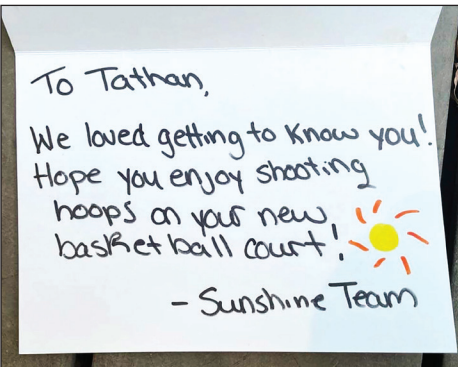 To Tathan,
We loved getting to know you!
Hope you enjoy shooting
hoops on your new
basketball court!
- Sunshine Team